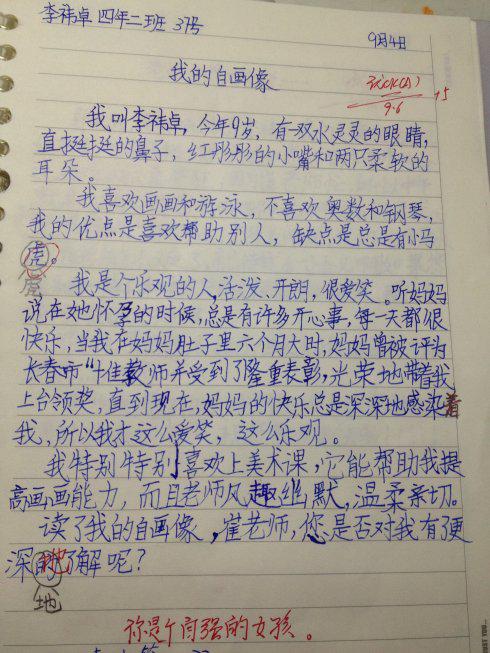 李祎卓 四年二班 37号
9月4日
我的自画像
9.6
我叫李祎卓,今年9岁,有一双水灵灵的眼睛,
直挺挺的鼻子,红彤彤的小嘴和两只柔软的
耳朵。
我喜欢画画和游泳,不喜欢奥数和钢琴,
我的优点是喜欢帮助别人,缺点是总是有小马
虎。
虎
我是个乐观的人,活泼、开朗,很爱笑。听妈妈
说在她怀孕的时候,总是有许多开心事,每一天都很
快乐,当我在妈妈肚子里六个月大时,妈妈曾被评为
长春市"十佳教师并受到了隆重表彰,光荣地带着我
上台领奖,直到现在,妈妈的快乐总是深深地感染着
我,所以我才这么爱笑,这么乐观。
我特别特别喜欢上美术课,它能帮助我提
高画画能力,而且老师风趣幽默,温柔亲切。
读了我的自画像,崔老师,您是否对我有了更
深地了解呢?
地
你是个自强的女孩。